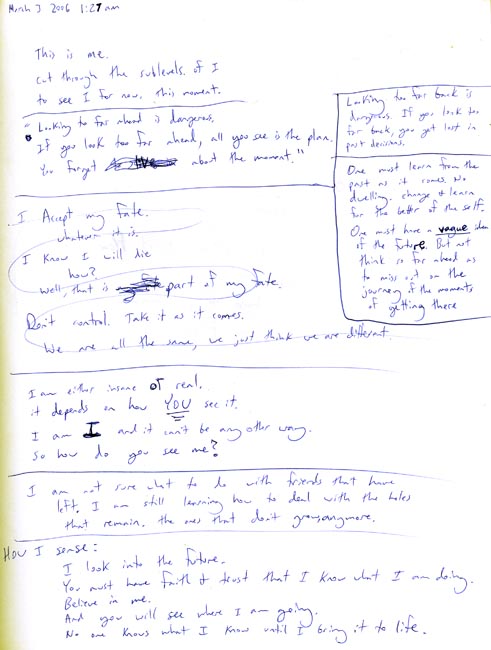 March 3 2006 1:27 am
This is me.
cut through the sublevels. of I
to see I for now. this moment.
"Looking to far ahead is dangerous.
If you look too far ahead, all you see is the plan.
You forget about the moment."
Looking too far back is
dangerous. If you look too
far back, you get lost in
past decisions.
One must learn from the
past as it comes. No
dwelling. change & learn
for the better of the self.
One must have a vague idea
of the future. But not
think so far ahead as
to miss out on the
journey of the moments
of getting there
I Accept my fate.
whatever it is.
I know I will die
how?
well, that is part of my fate.
Don't control. Take it as it comes.
We are all the same, we just think we are different.
I am either insane or real.
it depends on how YOU see it.
I am I and it can't be any other way.
So how do you see me?
I am not sure what to do with friends that have
left. I am still learning how to deal with the holes
that remain. the ones that don't grow anymore.
How I sense:
I look into the future.
You must have faith & trust that I know what I am doing.
Believe in me.
And you will see where I am going.
No one knows what I know until I bring it to life.